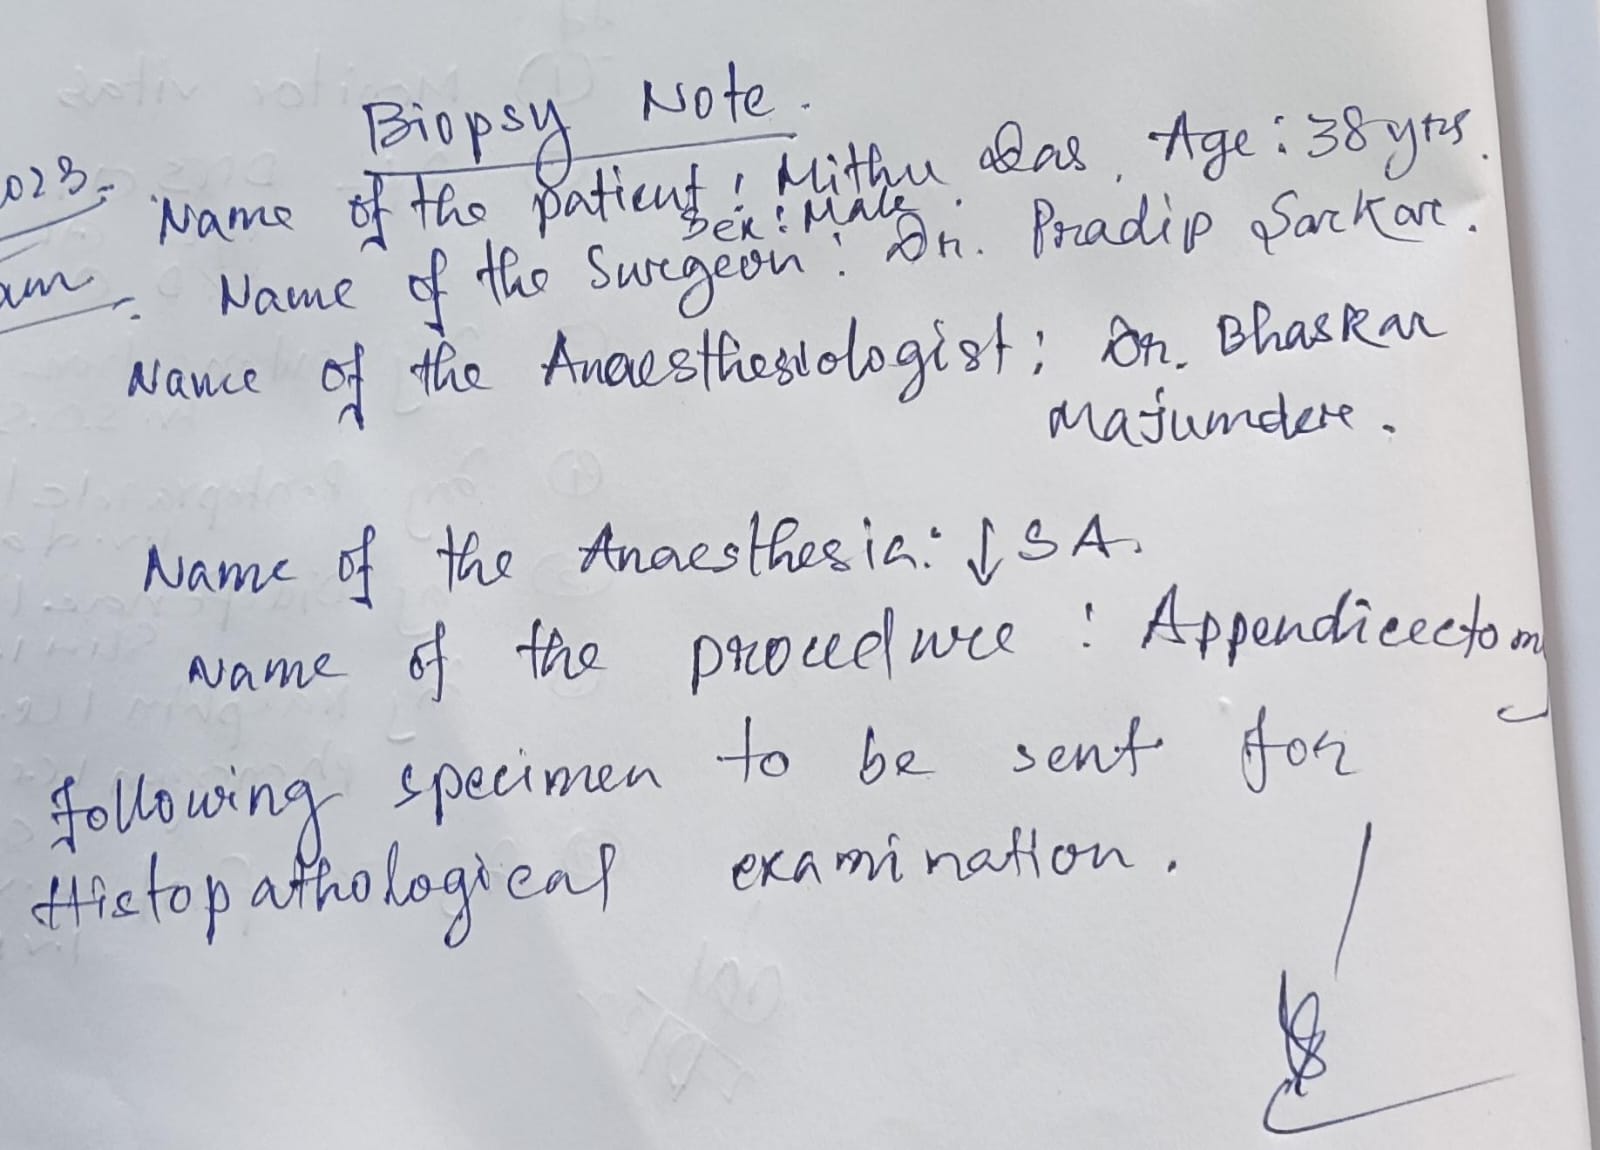 Biopsy Note.
023. Name of the patient : Mithu Das, Age : 38 yrs.
Sex : Male.
am. Name of the Surgeon : Dr. Pradip Sarkar.
Name of the Anaesthesiologist : Dr. Bhaskar
Majumder.
Name of the Anaesthesia : ↓ SA.
Name of the procedure : Appendicectomy
following specimen to be sent for
Histopathological examination.